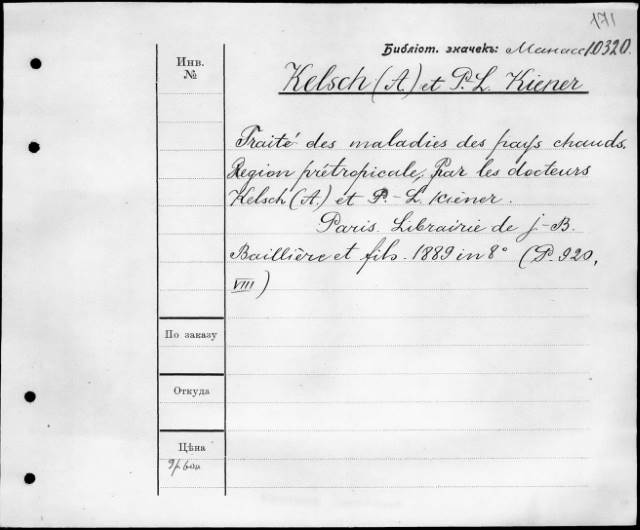 171
Библіот. значекъ: Манасс 10320.
Инв.
№
Kelsch (A.) et P. L. Kiener
Traité des maladies des pays chauds.
Region prétropicale, Par les docteurs
Kelsch (A.) et P.-L. Kiener.
Paris. Librairie de J.-B.
Baillière et fils. 1889 in 8° (P. 920,
VIII)
По заказу
Откуда
Цѣна